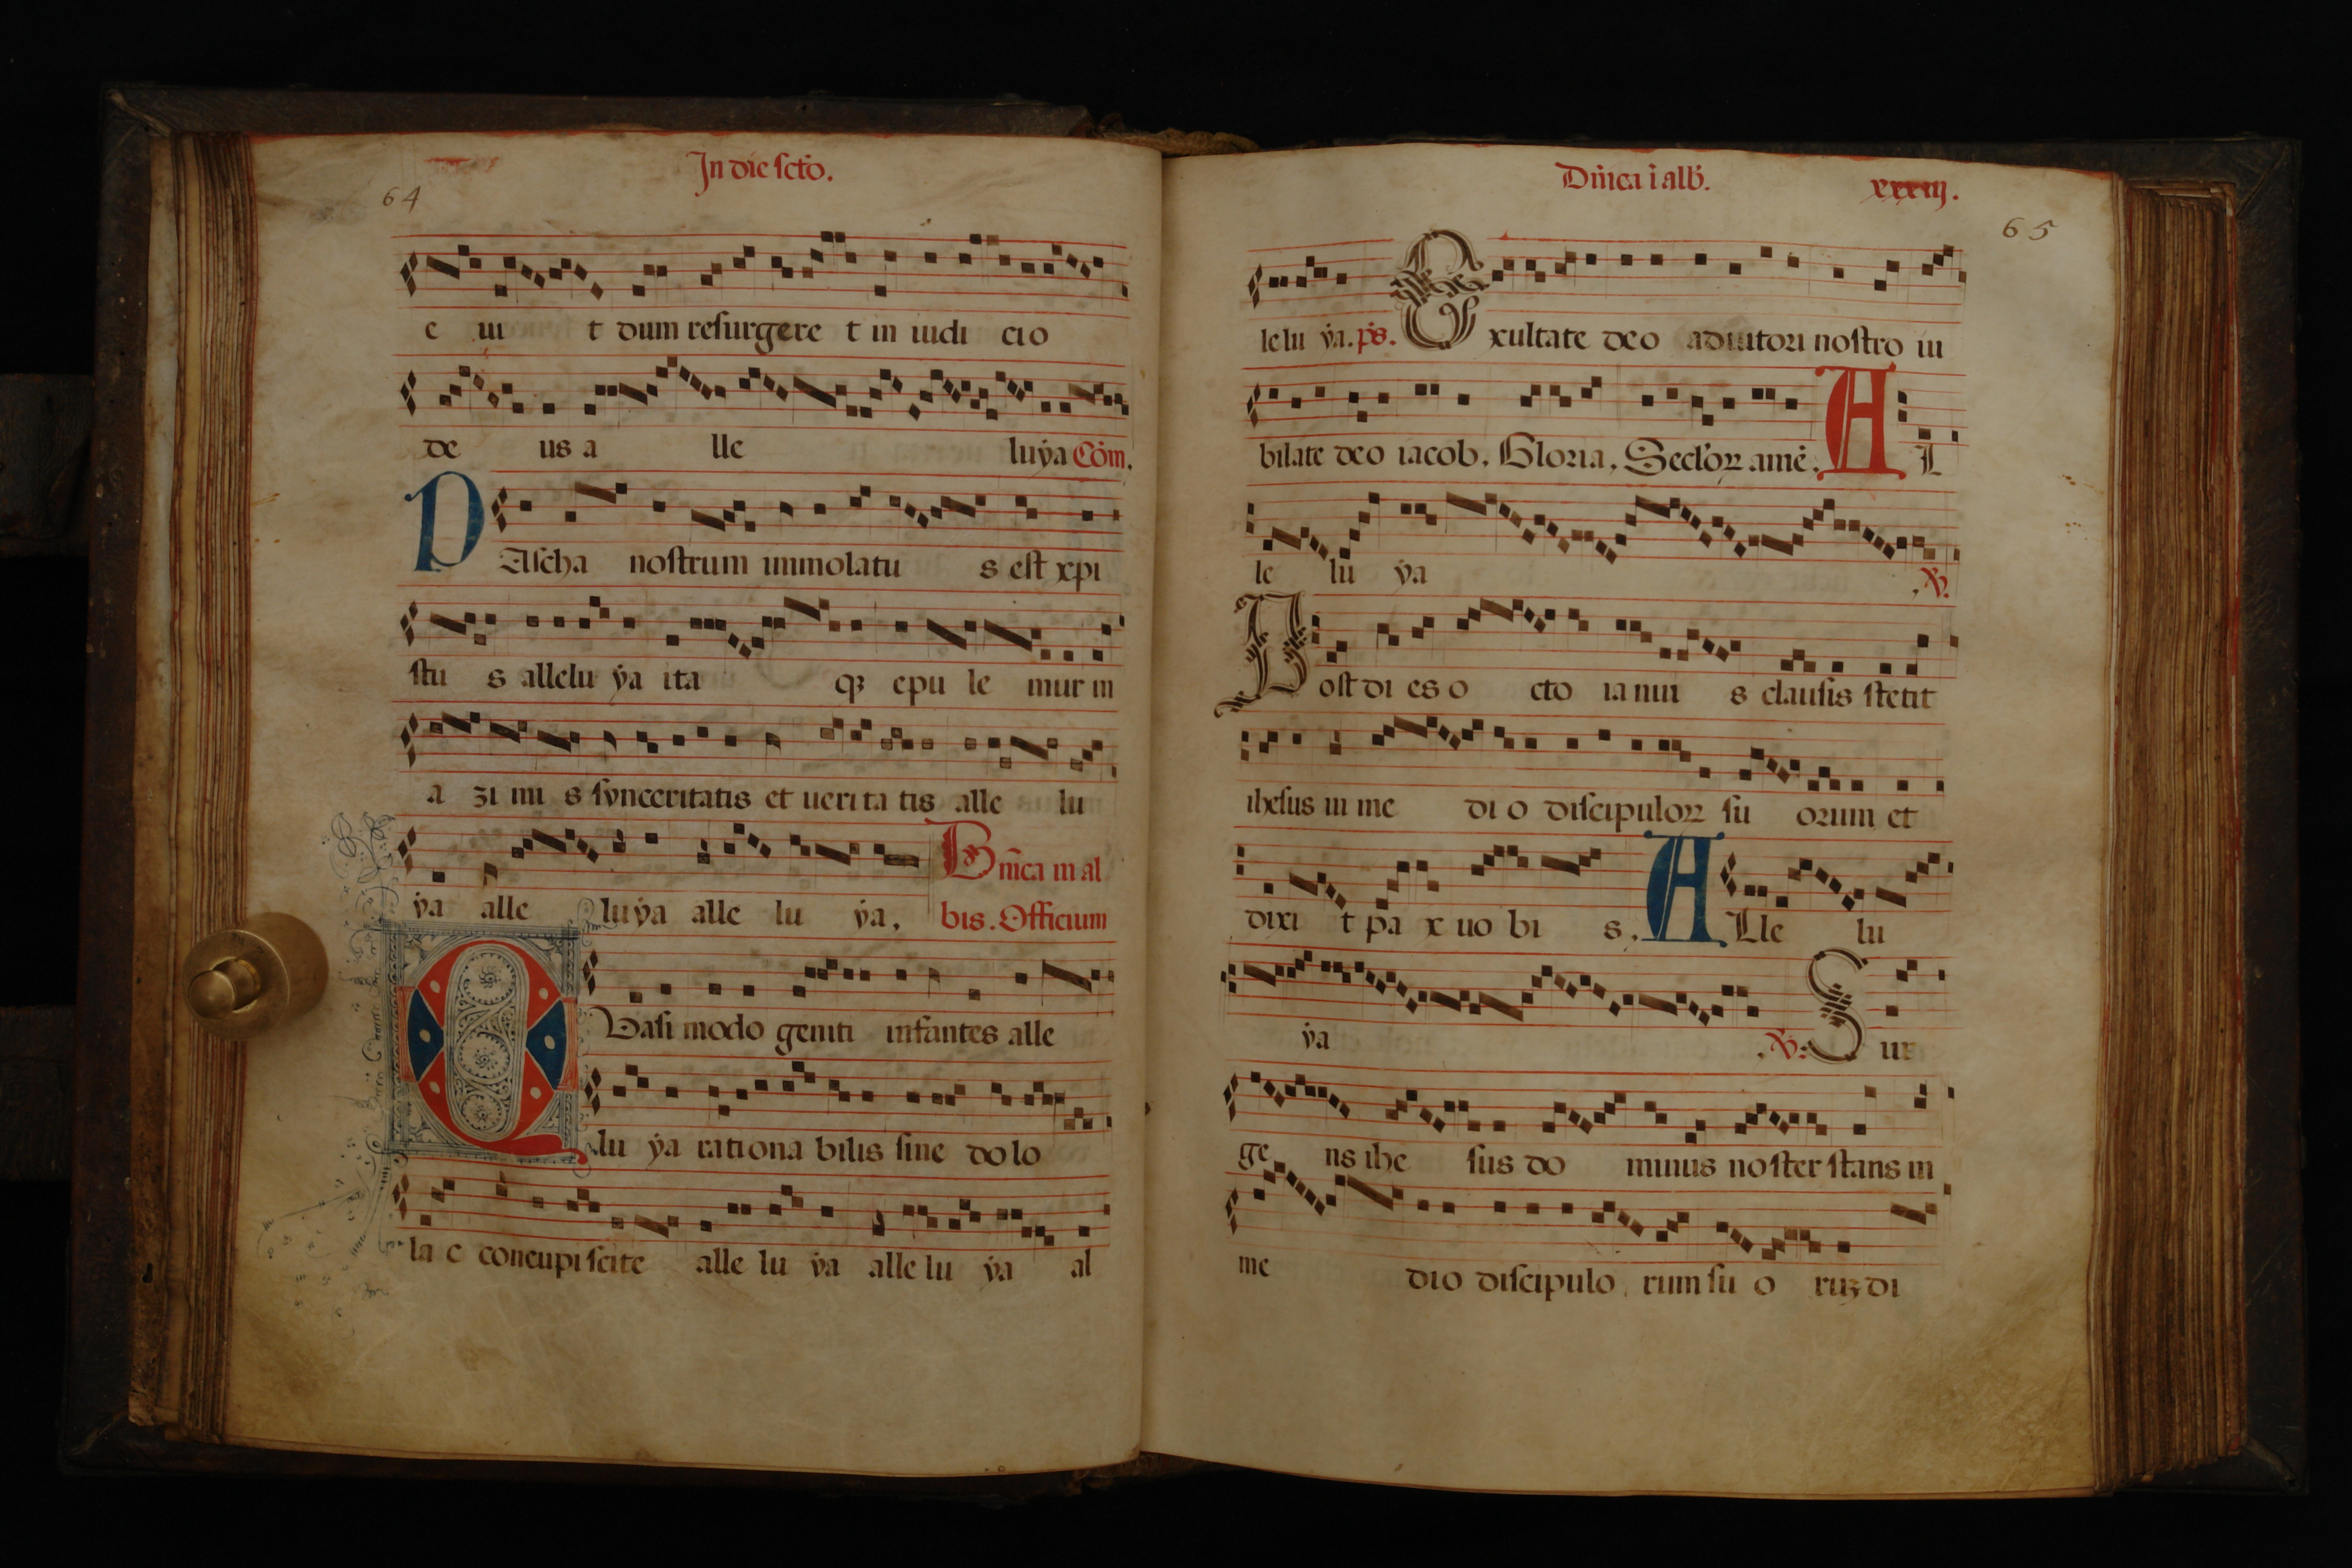 In die scto.
64
e ui t dum resurgere t in iudi cio
de us a lle luẏa Cōm.
P Ascha nostrum immolatu s est xpi
stu s allelu ẏa ita qꝫ epu le mur in
a zi mi s sẏnceritatis et ueri ta tis alle lu
ẏa alle luẏa alle lu ẏa. Dn̄ica in al
bis. Officium
Quasi modo geniti infantes alle
lu ẏa rationa bilis sine dolo
la c concupiscite alle lu ẏa alle lu ẏa al
Dn̄ica ī alb̄.
xxxiij.
65
lelu ẏa. ps̄. Exultate deo adiutori nostro iu
bilate deo iacob. Gloria. Seclꝛoꝝ amē. A L
le lu ẏa . ℣.
Post di es o cto ia nui s clausis stetit
ihesus in me di o discipuloꝝ su orum et
dixi t pa x uo bi s. A Lle lu
ẏa . ℣. Sur
ge ns ihe sus do minus noster stans in
me dio discipulo rum su o ruꝫ di